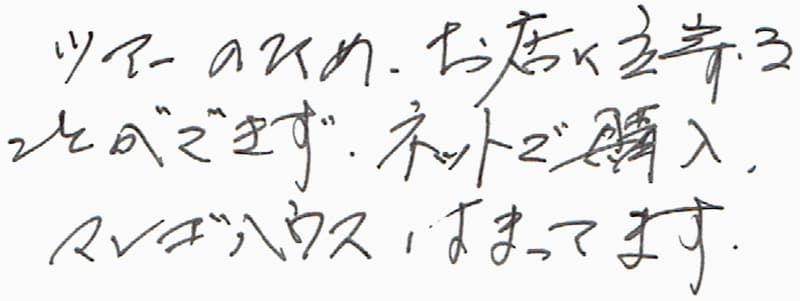 ツアーのため、お店に立寄る
ことができず、ネットで購入、
マンゴハウス、はまってます。